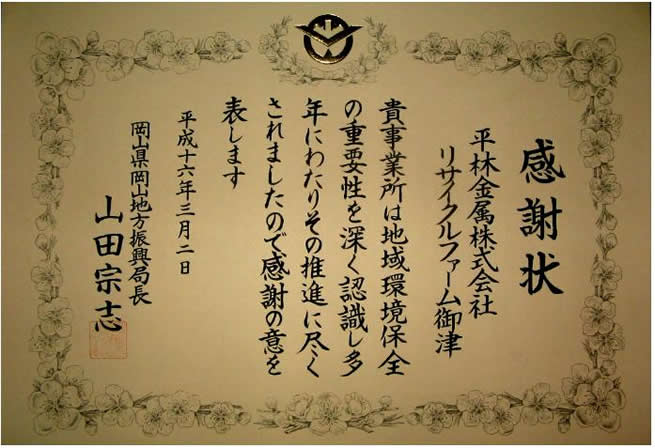 感謝状
平林金属株式会社
リサイクルファーム御津
貴事業所は地域環境保全
の重要性を深く認識し多
年にわたりその推進に尽く
されましたので感謝の意を
表します
平成十六年三月二日
岡山県岡山地方振興局長
山田宗志